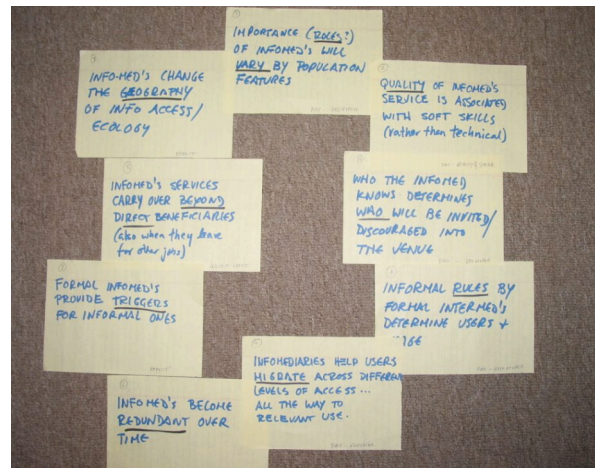 IMPORTANCE (ROLES?)
OF INFOMED'S WILL
VARY BY POPULATION
FEATURES
INFO-MED'S CHANGE
THE GEOGRAPHY
OF INFO ACCESS/
ECOLOGY
QUALITY OF INFOMED'S
SERVICE IS ASSOCIATED
WITH SOFT SKILLS
(rather than technical)
INFOMED'S SERVICES
CARRY OVER BEYOND
DIRECT BENEFICIARIES
(also when they leave
for other jobs)
WHO THE INFOMED
KNOWS DETERMINES
WHO WILL BE INVITED/
DISCOURAGED INTO
THE VENUE
FORMAL INFOMED'S
PROVIDE TRIGGERS
FOR INFORMAL ONES
INFORMAL RULES BY
FORMAL INTERMED'S
DETERMINE USERS +
INFOMEDIARIES HELP USERS
MIGRATE ACROSS DIFFEREN
LEVELS OF ACCESS...
ALL THE WAY TO
RELEVANT USE.
INFOMED'S BECOME
REDUNDANT OVER
TIME